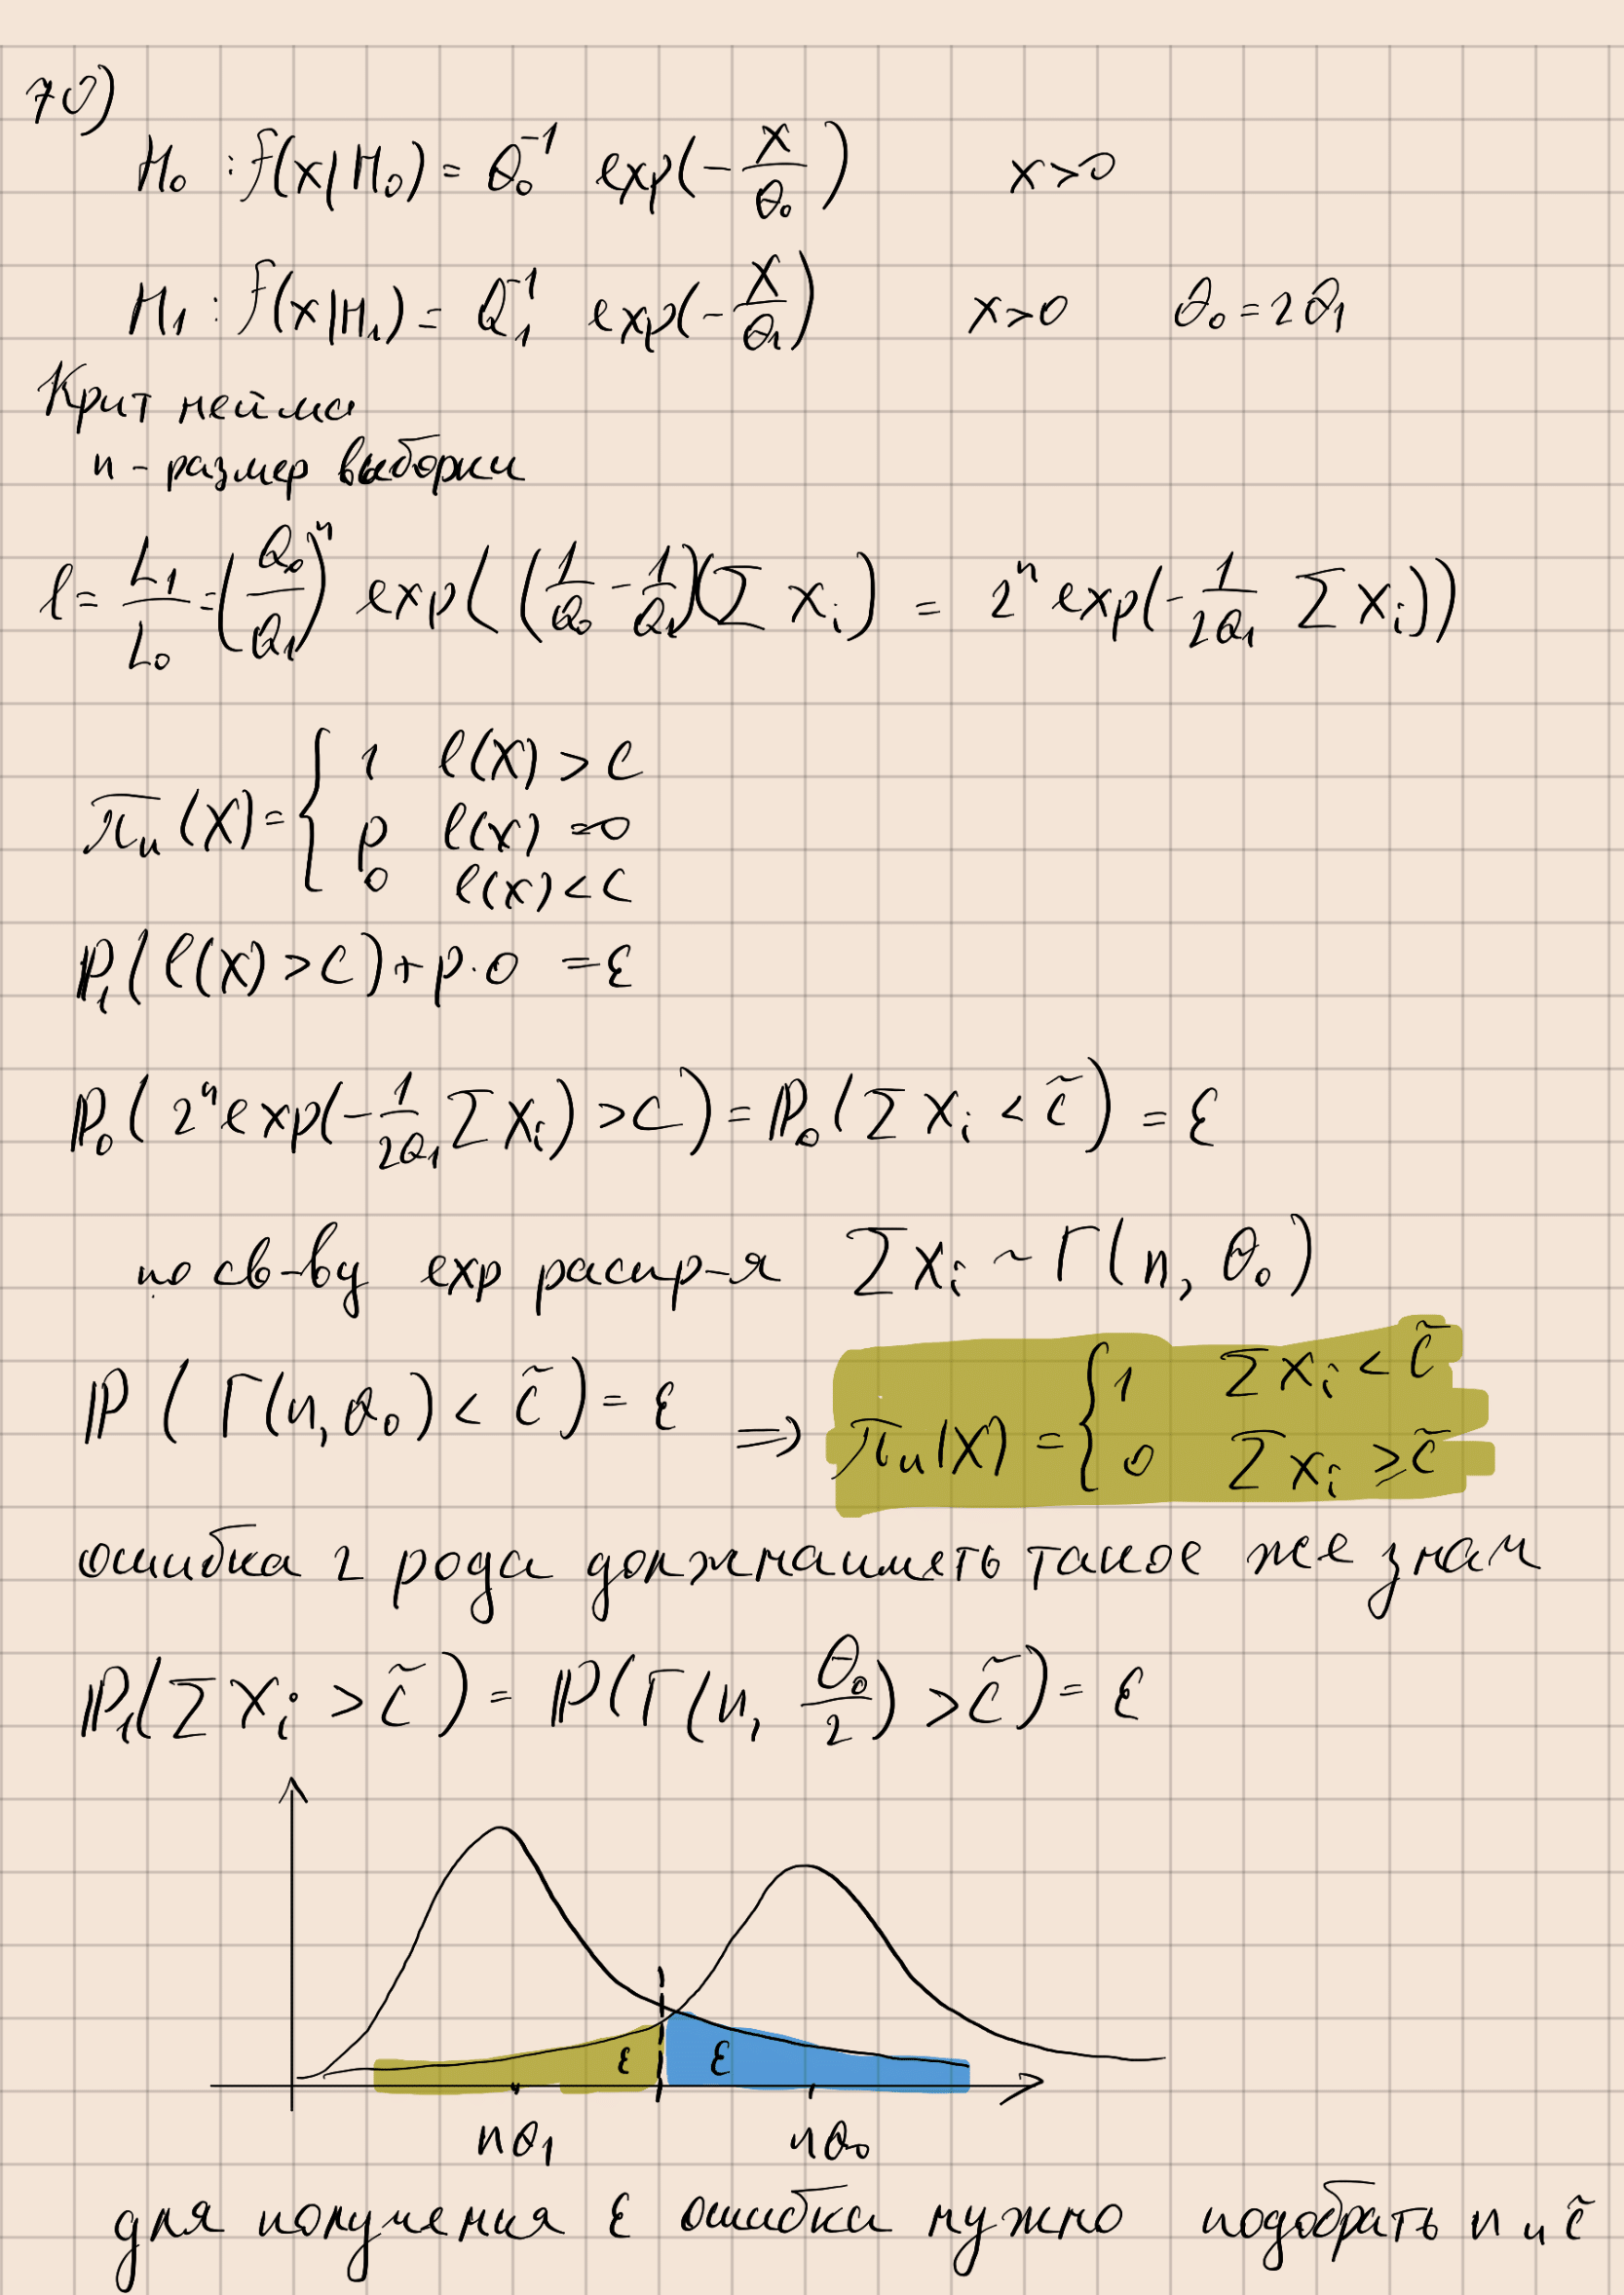 70)
H₀ : f(x|H₀) = θ₀⁻¹ exp(-x/θ₀) x>0
H₁ : f(x|H₁) = θ₁⁻¹ exp(-x/θ₁) x>0 θ₀ = 2θ₁
Крит нейма
n - размер выборки
l = L₁/L₀ = (θ₀/θ₁)ⁿ exp((1/θ₀ - 1/θ₁)(Σ xᵢ) = 2ⁿ exp(-1/2θ₁ Σ xᵢ))
πₙ(X) = { 1 l(X) > C
p l(x) = 0
0 l(x) < C
P₁(l(X) > C) + p·0 = ε
P₀(2ⁿ exp(-1/2θ₁ Σ xᵢ) > C) = P₀(Σ xᵢ < c̃) = ε
по св-ву exp распр-я Σ xᵢ ~ Γ(n, θ₀)
P(Γ(n, θ₀) < c̃) = ε ⇒ πₙ(X) = { 1 Σ xᵢ < c̃
0 Σ xᵢ ≥ c̃
ошибка 2 рода должна иметь такое же знач
P₁(Σ xᵢ > c̃) = P(Γ(n, θ₀/2) > c̃) = ε
ε ε
nθ₁ nθ₀
для получения ε ошибки нужно подобрать n и c̃